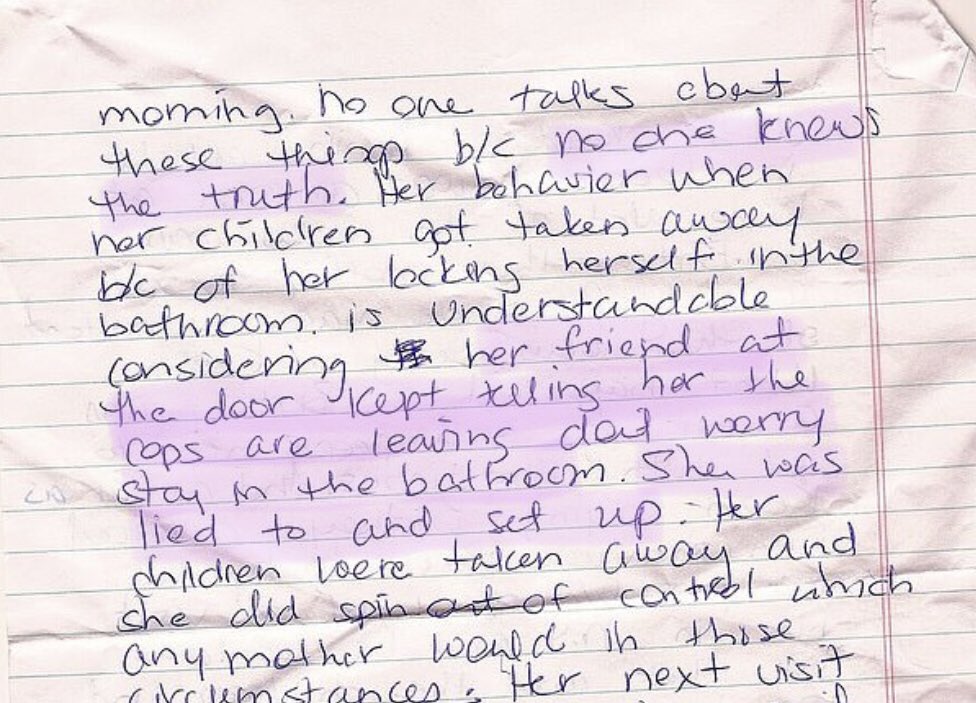 morning. No one talks about
these things b/c no one knows
the truth. Her behavior when
her children got taken away
b/c of her locking herself in the
bathroom. is understandable
considering her friend at
the door kept telling her the
cops are leaving dont worry
stay in the bathroom. She was
lied to and set up. Her
children were taken away and
she did spin out of control which
any mother would in those
circumstances. Her next visit